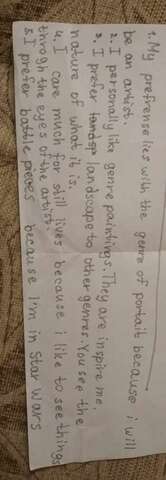 1. My prefrense lies with the genre of portait because i will
be an artist.
2. I personally like genre paintings. They are inspire me.
3. I prefer landscape to other genres. You see the
nature of what it is.
4. I care much for still lives because i like to see things
throgh the eyes of the artist.
5. I prefer battle pieces because I'm in Star Wars